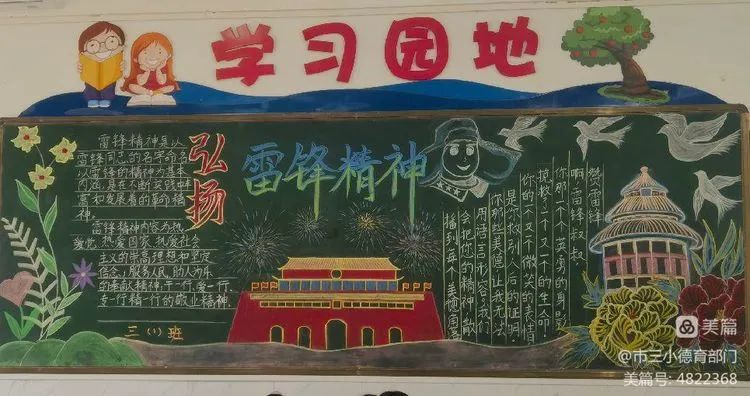 学习园地
弘扬
雷锋精神
雷锋精神是以
雷锋同志的名字命名
以雷锋的精神为基本
内涵,是在不断实践中丰
富和发展着的革命精
神。
雷锋精神内容为:热
爱党、热爱国家、热爱社会
主义的崇高理想和坚定
信念;服务人民、助人为乐
的奉献精神;干一行、爱一行、
专一行精一行的敬业精神
三(1)班
赞雷锋
啊!雷锋叔叔
你那一个个英勇的身影
拯救了一个又一个的生命。
你的一个又一个微笑的表情
是你救别人后的证明。
你那些美德,让我无法
用语言形容。我们
会把你的精神散
播到每个美德园里
美篇
@市三小德育部门
美篇号: 4822368